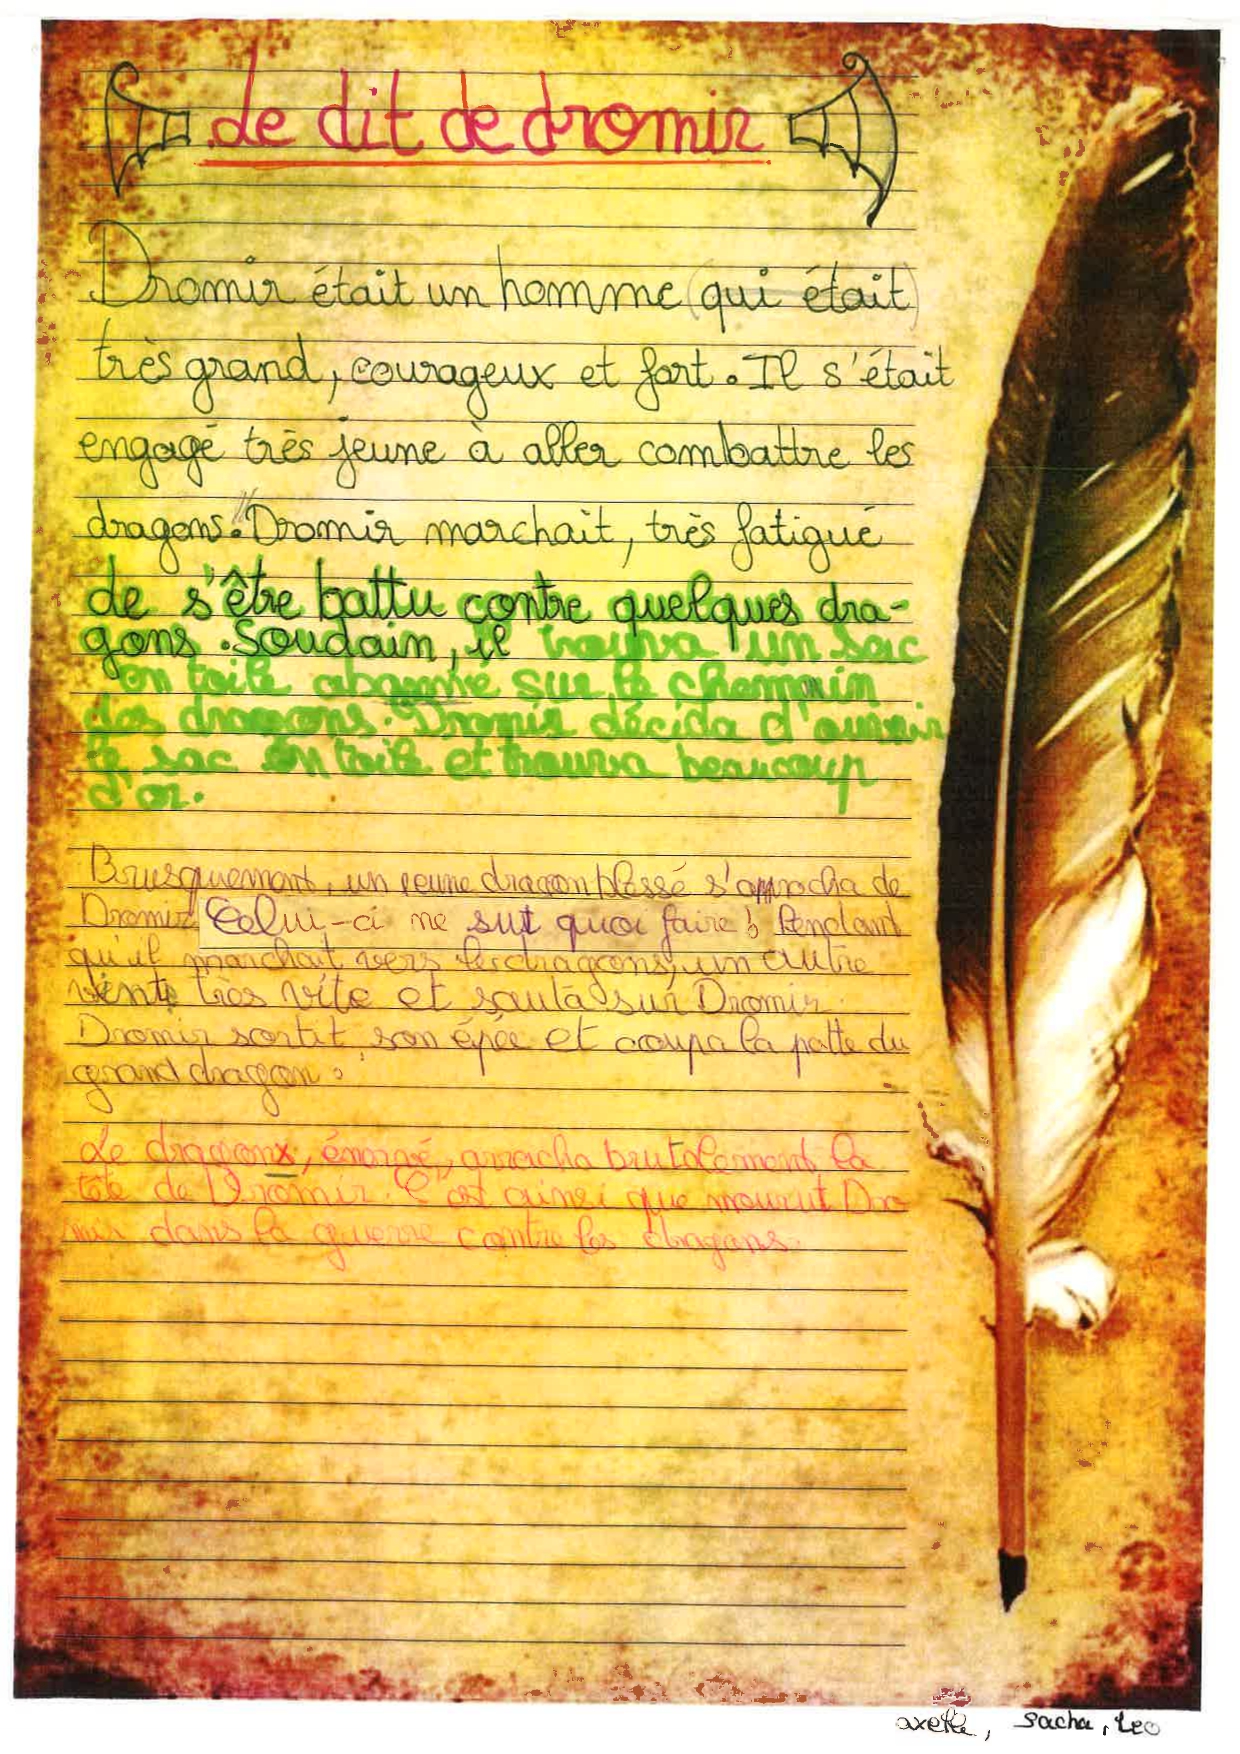 Le dit de dromir
Dromir était un homme (qui était)
très grand, courageux et fort. Il s'était
engagé très jeune à aller combattre les
dragons. Dromir marchait, très fatigué
de s'être battu contre quelques dra-
gons. Soudain, il trouva un sac
en toile sur le chemin
des dragons. Dromir décida d'ouvrir
le sac en toile et trouva beaucoup
d'or.
Brusquement, un jeune dragon blessé s'approcha de
Dromir. Celui-ci ne sut quoi faire! Pendant
qu'il marchait vers les dragons, un autre
très vite et sauta sur Dromir.
Dromir sortit son épée et coupa la patte du
grand dragon.
Le , énervé, arracha brutalement la
tête de Dromir. C'est ainsi que mourut Dro
mir dans la guerre contre les dragons.
axelle, sacha, Leo